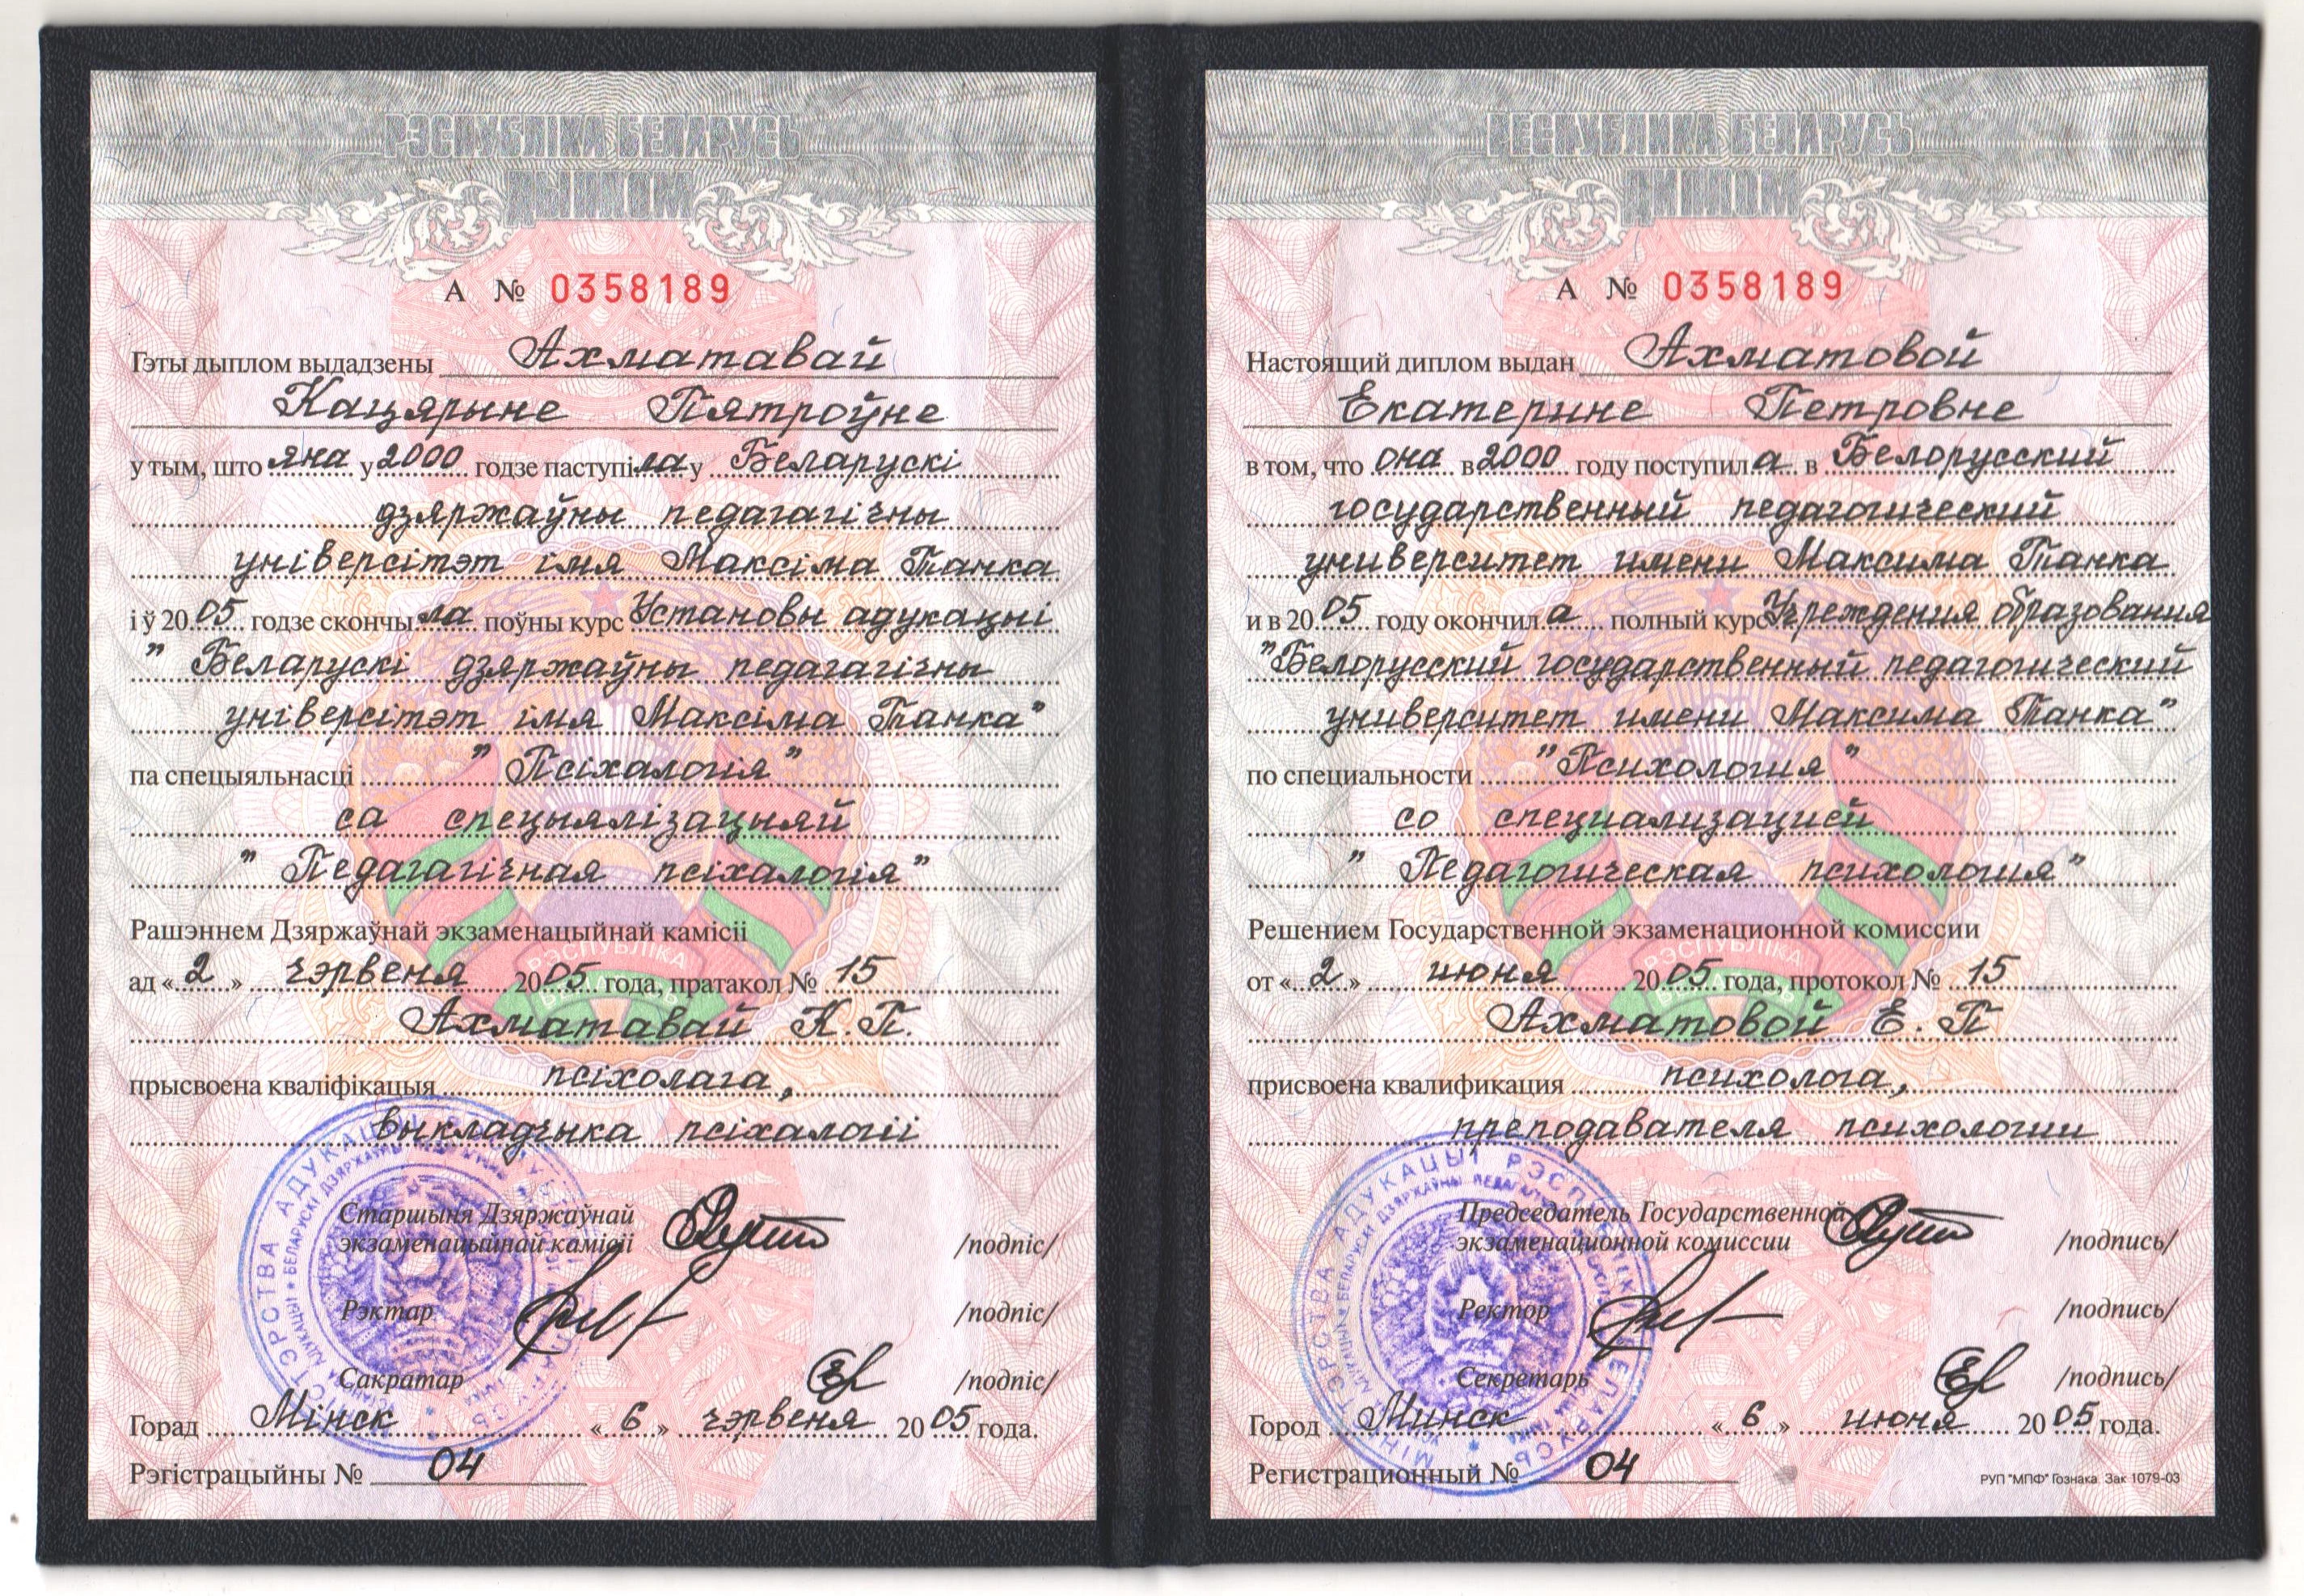 РЭСПУБЛІКА БЕЛАРУСЬ
ДЫПЛОМ
А № 0358189
Гэты дыплом выдадзены Ахматавай
Кацярыне Пятроўне
у тым, што яна у 2000 годзе паступіла у Беларускі
дзяржаўны педагагічны
універсітэт імя Максіма Танка
і ў 2005 годзе скончыла поўны курс Установы адукацыі
"Беларускі дзяржаўны педагагічны
універсітэт імя Максіма Танка"
па спецыяльнасці "Псіхалогія"
са спецыялізацыяй
"Педагагічная псіхалогія"
Рашэннем Дзяржаўнай экзаменацыйнай камісіі
ад «2» чэрвеня 2005 года, пратакол № 15
Ахматавай К.П.
прысвоена кваліфікацыя псіхолага,
выкладчыка псіхалогіі
Старшыня Дзяржаўнай
экзаменацыйнай камісіі /подпіс/
Рэктар /подпіс/
Сакратар /подпіс/
Горад Мінск «6» чэрвеня 2005 года.
Рэгістрацыйны № 04
РЕСПУБЛИКА БЕЛАРУСЬ
ДИПЛОМ
А № 0358189
Настоящий диплом выдан Ахматовой
Екатерине Петровне
в том, что она в 2000 году поступила в Белорусский
государственный педагогический
университет имени Максима Танка
и в 2005 году окончила полный курс Учреждения образования
"Белорусский государственный педагогический
университет имени Максима Танка"
по специальности "Психология"
со специализацией
"Педагогическая психология"
Решением Государственной экзаменационной комиссии
от «2» июня 2005 года, протокол № 15
Ахматовой Е.П
присвоена квалификация психолога,
преподавателя психологии
Председатель Государственной
экзаменационной комиссии /подпись/
Ректор /подпись/
Секретарь /подпись/
Город Минск «6» июня 2005 года.
Регистрационный № 04
РУП "МПФ" Гознака Зак 1079-03